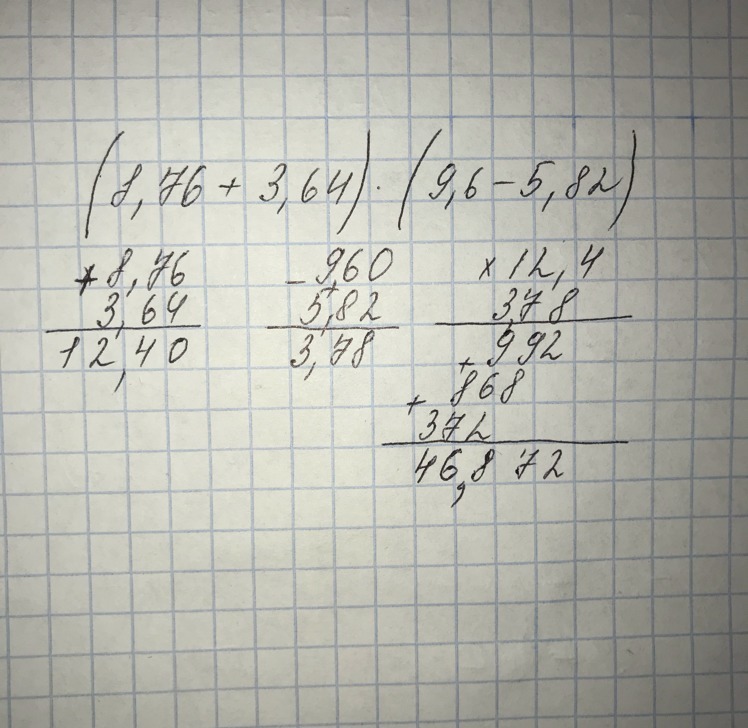 (8,76 + 3,64) · (9,6 - 5,82)
+ 8,76
3,64
12,40
- 9,60
5,82
3,78
x 12,4
3,78
992
+ 868
+ 372
46,872